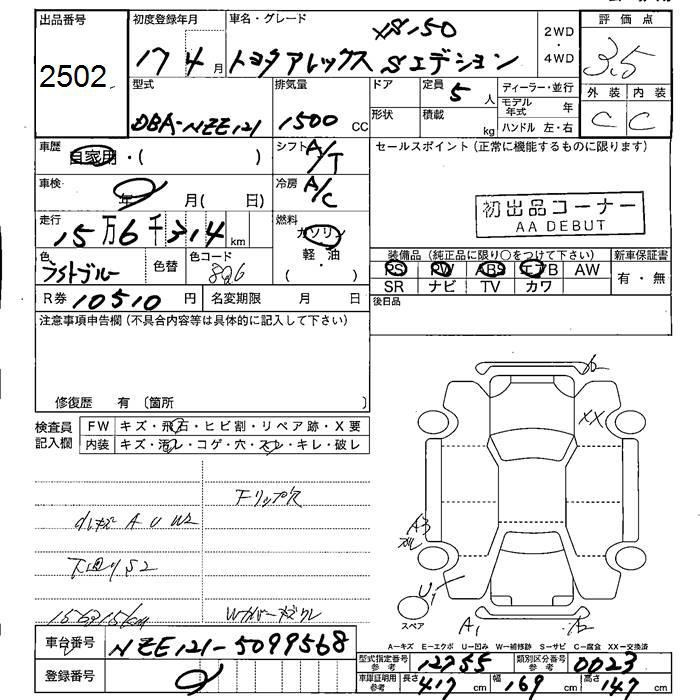 出品番号
2502
初度登録年月
17 4月
車名・グレード
XS150
トヨタアレックス Sエデション
2WD
・
4WD
評価点
3.5
外装 内装
C C
型式
DBA-NZE121
排気量
1500 CC
ドア
形状
定員 5 人
積載 kg
ディーラー・並行
モデル年式 年
ハンドル 左・右
車歴
自家用・( )
シフト
A/T
セールスポイント(正常に機能するものに限ります)
車検
年 月( 日)
冷房
A/C
初出品コーナー
AA DEBUT
走行
15万6千314 km
燃料
ガソリン
軽・油
( )
色
色替
色コード
8Q6
装備品(純正品に限り○をつけて下さい)
新車保証書
PS PW ABS エアB AW
SR ナビ TV カワ
有・無
R券 10510 円
名変期限 月 日
後日品
注意事項申告欄(不具合内容等は具体的に記入して下さい)
修復歴 有 〔箇所 〕
検査員
記入欄
FW キズ・飛石・ヒビ割・リペア跡・X要
内装 キズ・汚レ・コゲ・穴・スレ・キレ・破レ
XX
A3
スレ
Fリップ欠
小キズ A U W2
下廻りS2
156315km
Wカバーズレ
スペア
A1
A2
車台番号 NZE121-5099568
登録番号
A-キズ E-エクボ U-凹み W-補修跡 S-サビ C-腐食 XX-交換済
型式指定番号
参考
12755
類別区分番号
参考
0023
車庫証明用
参考
長さ 417 cm
幅 169 cm
高さ 147 cm